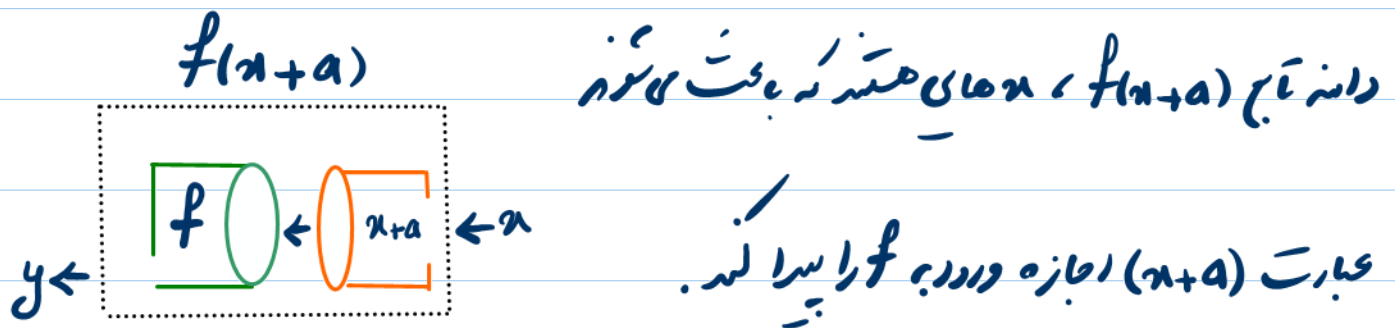 f(x+a)
دامنه تابع f(x+a) ، xهایی هستند که باعث می‌شوند
عبارت (x+a) اجازه ورود به f را پیدا کند.
f ← x+a ← x
y ←